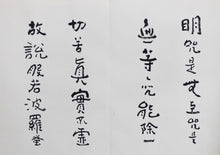 明咒是无上咒是
無等〻咒能除一
切苦眞實不虛
故說般若波羅蜜